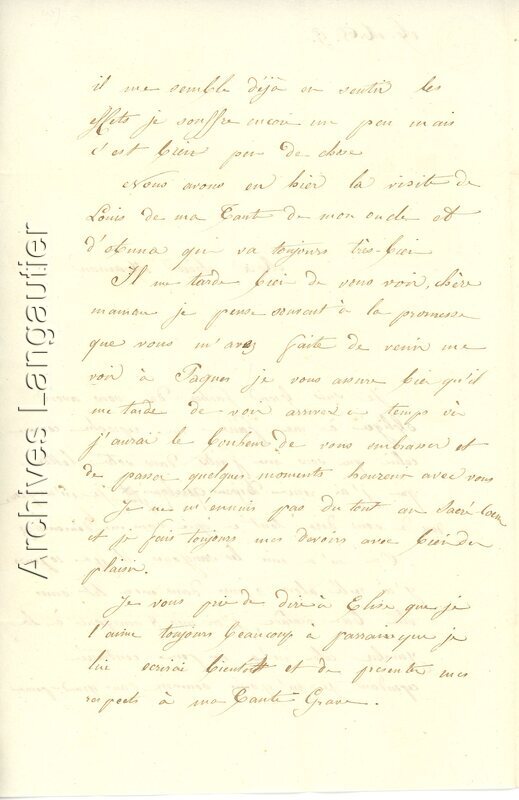 il me semble déjà en sentir les
effets je souffre encore un peu mais
c'est bien peu de chose
Nous avons eu hier la visite de
Louis de ma Tante de mon oncle et
d'Anna qui va toujours très-bien
Il me tarde bien de vous voir, chère
maman je pense souvent à la promesse
que vous m'avez faite de venir me
voir à Paques je vous assure bien qu'il
me tarde de voir arriver ce temps où
j'aurai le bonheur de vous embrasser et
de passer quelques moments heureux avec vous
Je ne m'ennuis pas du tout au Sacré-Coeur
et je fais toujours mes devoirs avec bien du
plaisir.
Je vous prie de dire à Elise que je
l'aime toujours beaucoup à parrain que je
lui ecrirai bientôt et de présenter mes
respects à ma Tante Grave.
Archives Langautier